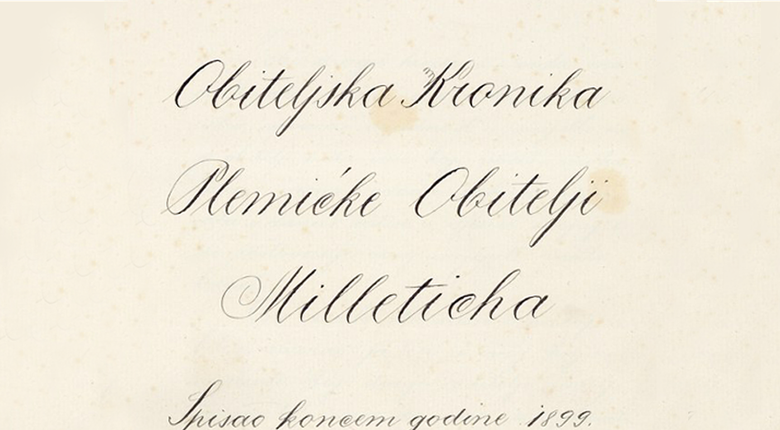 Obiteljska Kronika
Plemićke Obitelji
Milleticha
Spisao koncem godine 1899.